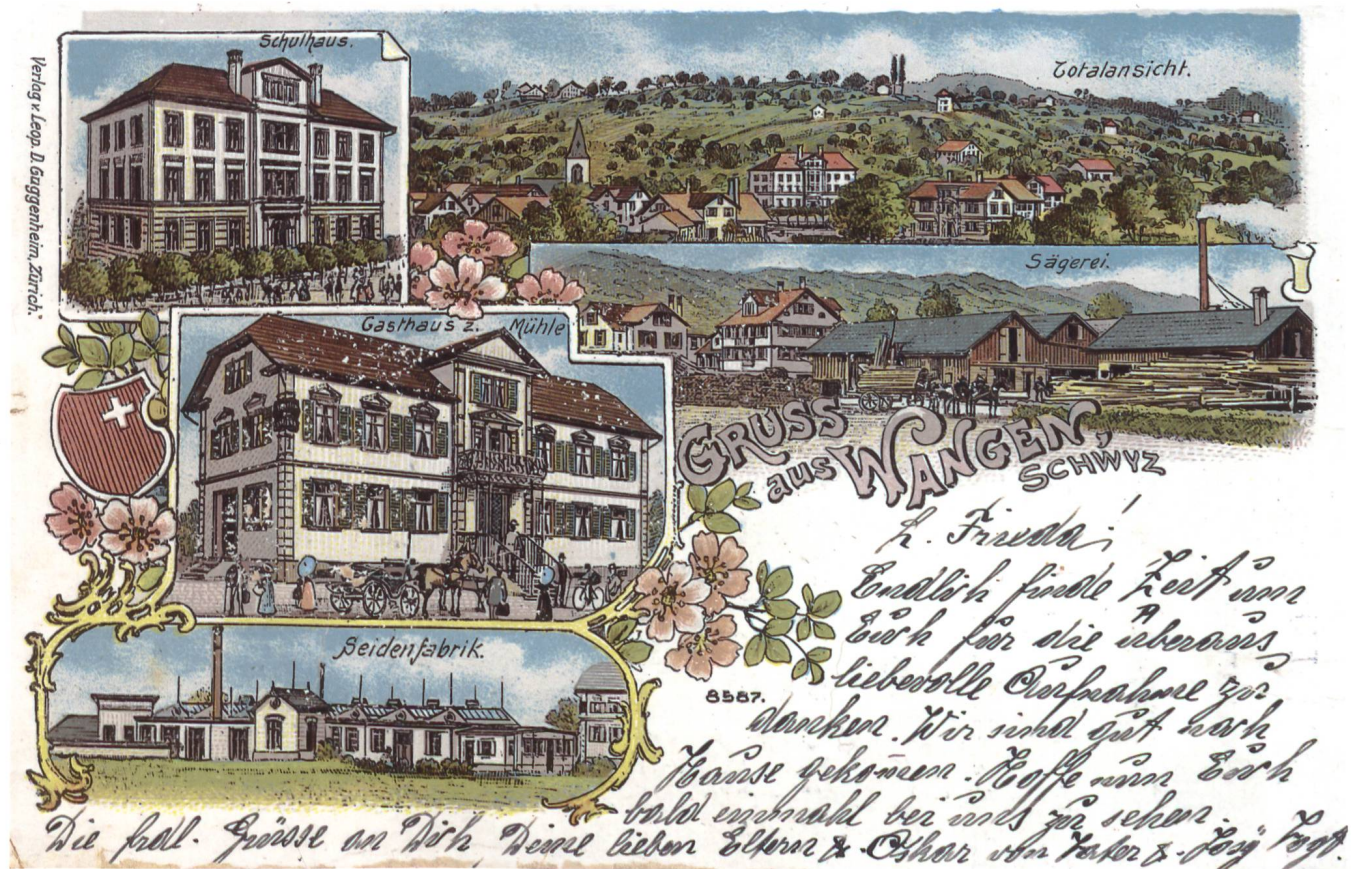 Verlag v. Leop. D. Guggenheim, Zürich.
Schulhaus.
Totalansicht.
Sägerei.
Gasthaus z. Mühle
GRUSS
aus WANGEN,
SCHWYZ
Seidenfabrik.
8587.
L. Frieda!
Endlich finde Zeit um
Euch für die überaus
liebevolle Aufnahme zu
danken. Wir sind gut nach
Hause gekom̄en. Hoffe nun Euch
bald einmahl bei uns zu sehen.
Die frdl. Grüsse an Dich, Deine lieben Eltern & Oskar von Vater & Vogt.